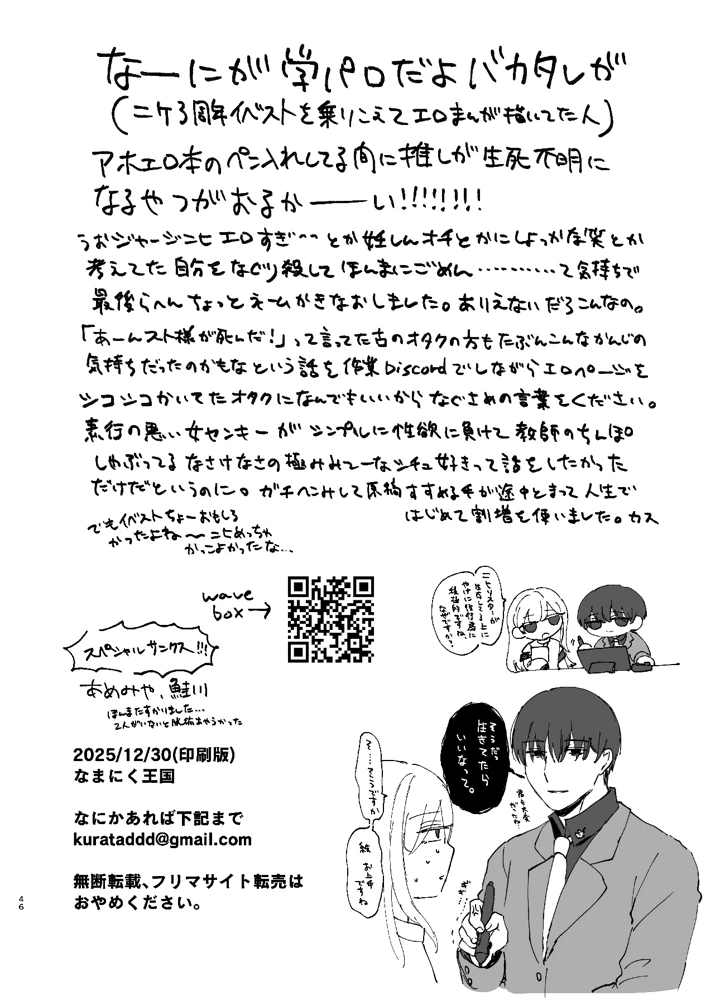 なーにが学パロだよバカタレが
(ニケ3周年イベストを乗りこえてエロまんが描いてた人)
アホエロ本のペン入れしてる間に推しが生死不明に
なるやつがおるか――い!!!!!!!!
うおジャージニヒエロすぎ^^とか妊しんオチとかにしよっかな笑とか
考えてた自分をなぐり殺してほんまにごめん…………って気持ちで
最後らへんちょっとネームかきなおしました。ありえないだろこんなの。
「あーんスト様が死んだ!」って言ってた古のオタクの方もたぶんこんなかんじの
気持ちだったのかもなという話を作業Discordでしながらエロページを
シコシコかいてたオタクになんでもいいからなぐさめの言葉をください。
素行の悪い女センキーがシンプルに性欲に負けて教師のちんぽ
しゃぶってるなさけなさの極みみてーなシチュ好きって話をしたかった
だけだというのに。ガチヘンみして原稿すすめる手が途中とまって人生で
はじめて割増を使いました。カス
でもイベストちょーおもしろ
かったよね～ニヒめっちゃ
かっこよかったな…
wave
box→
ニヒリスターが
生存してる上に
やけに性行為に
積極的ですね
なぜですか?
スペシャルサンクス!!!
あめみや、鮭川
ほんまたすかりました…
2人がいないと
そうだったら
生きてたら
いいなって。
そ…そうですか
絵 お上手
ですね
2025/12/30(印刷版)
なまにく王国
なにかあれば下記まで
kurataddd@gmail.com
無断転載、フリマサイト転売は
おやめください。
46